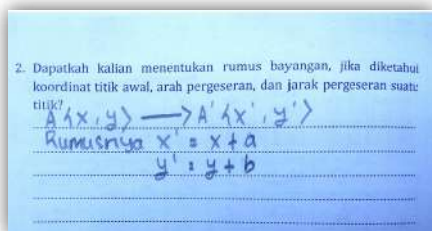 2. Dapatkah kalian menentukan rumus bayangan, jika diketahui
koordinat titik awal, arah pergeseran, dan jarak pergeseran suatu
titik?
A(x, y) ⟶ A'(x', y')
Rumusnya x' = x + a
y' = y + b